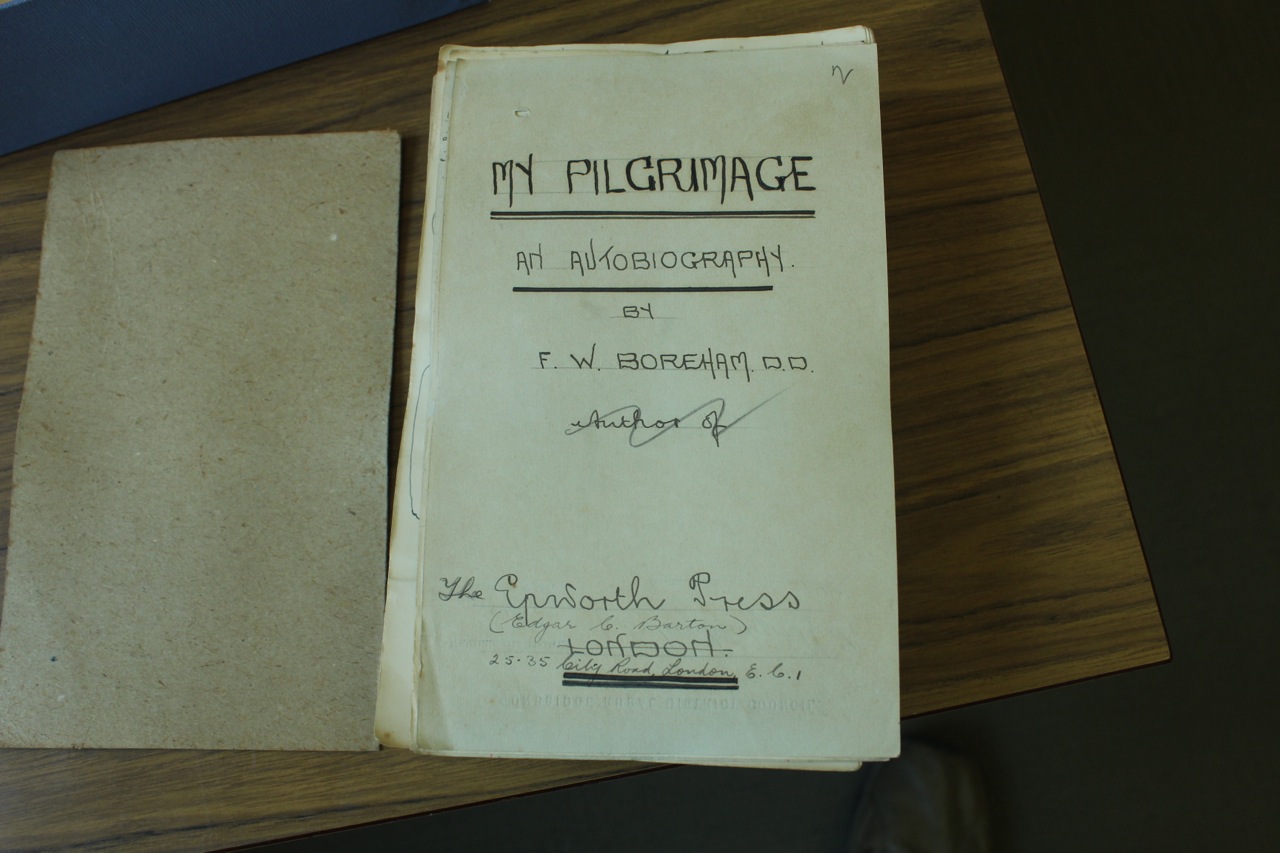 MY PILGRIMAGE
AN AUTOBIOGRAPHY.
BY
F. W. BOREHAM. D.D.
Author of
The Epworth Press
(Edgar C. Barton)
LONDON.
25-35 City Road, London, E. C. 1